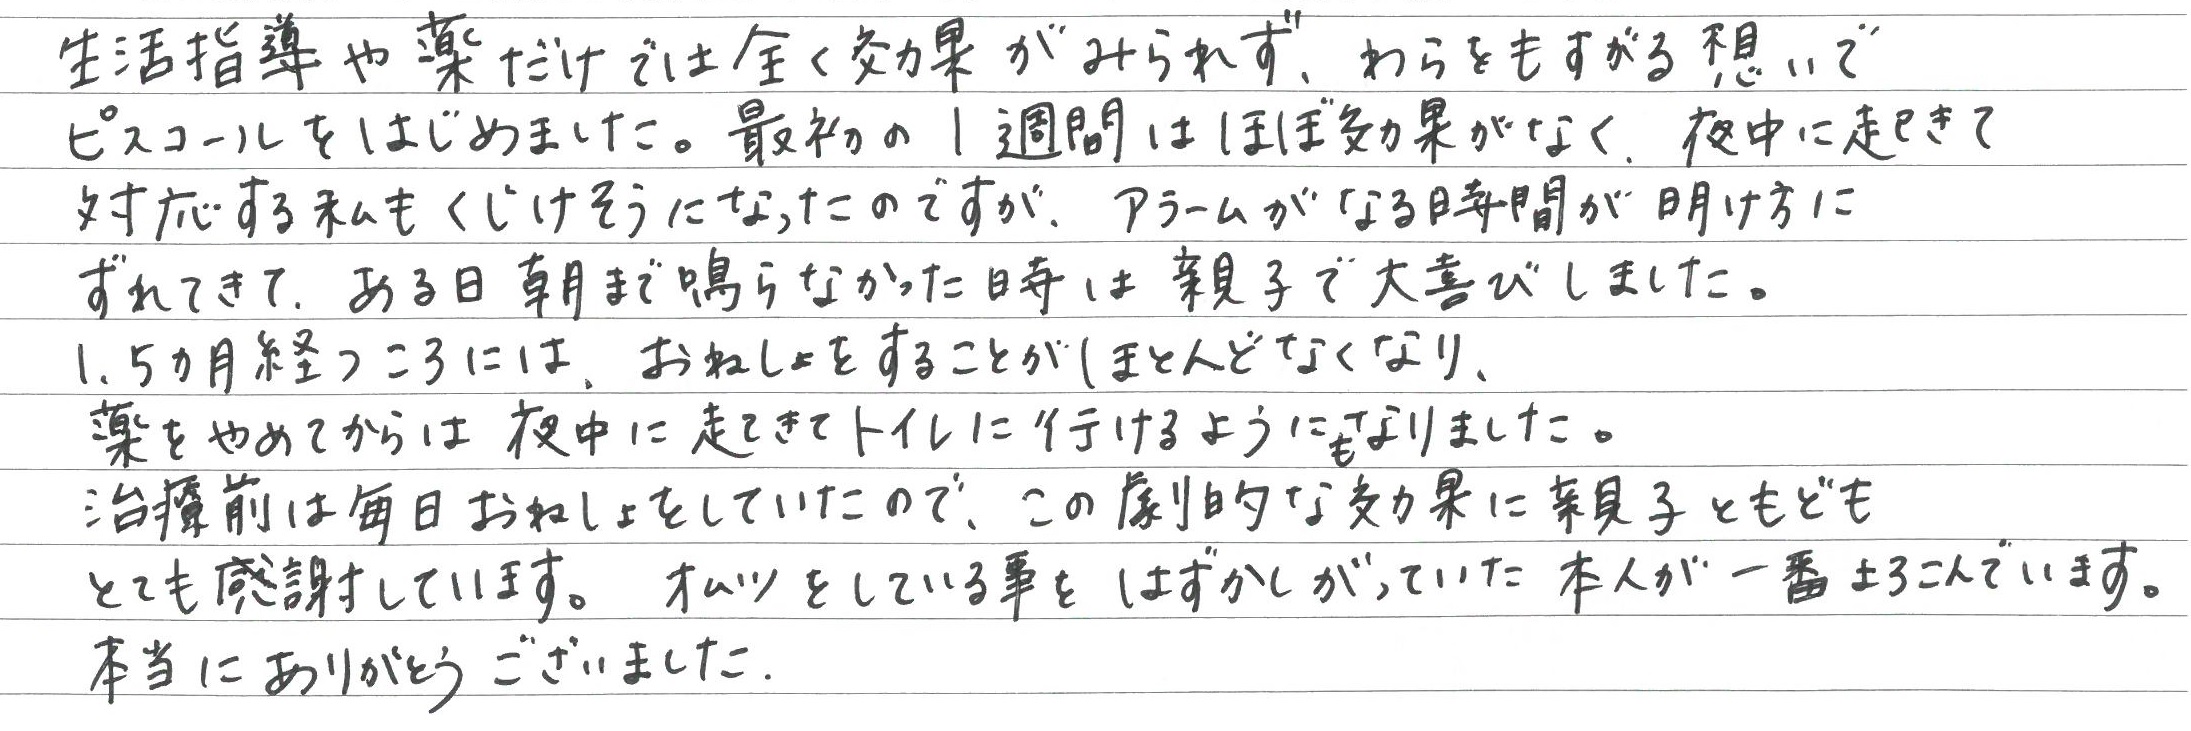 生活指導や薬だけでは全く効果がみられず、わらをもすがる想いで
ピスコールをはじめました。最初の1週間はほぼ効果がなく、夜中に起きて
対応する私もくじけそうになったのですが、アラームがなる時間が明け方に
ずれてきて、ある日朝まで鳴らなかった時は親子で大喜びしました。
1.5カ月経つころには、おねしょをすることがほとんどなくなり、
薬をやめてからは夜中に起きてトイレに行けるようにもなりました。
治療前は毎日おねしょをしていたので、この劇的な効果に親子ともども
とても感謝しています。オムツをしている事をはずかしがっていた本人が一番よろこんでいます。
本当にありがとうございました.